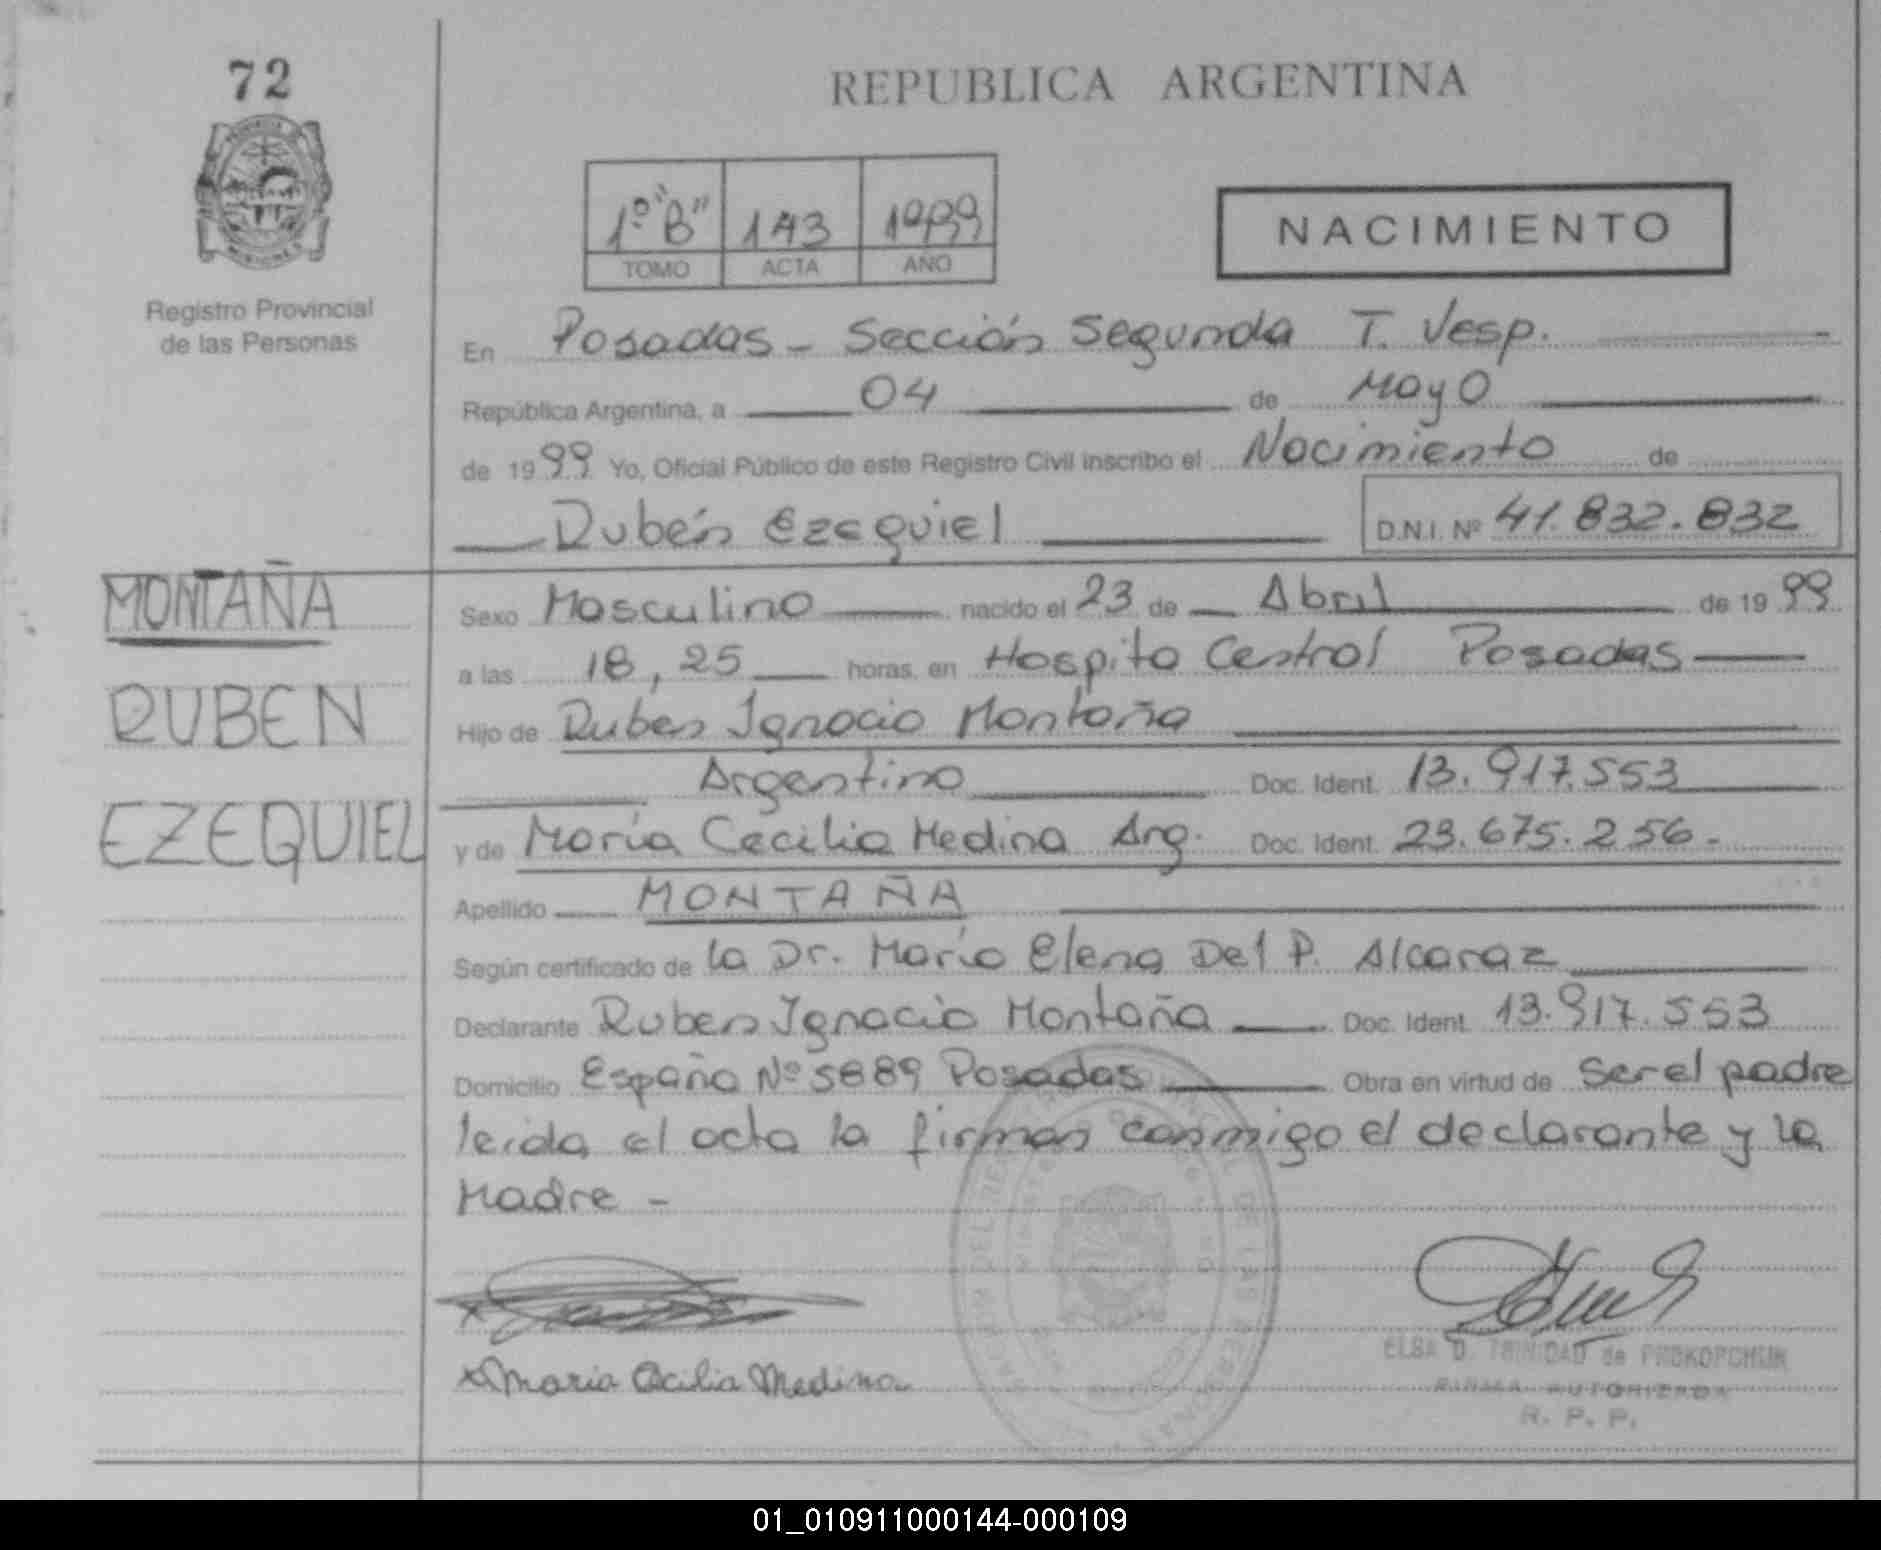 72
REPUBLICA ARGENTINA
1º "B" 143 1999
TOMO ACTA AÑO
NACIMIENTO
Registro Provincial
de las Personas
En Posadas - Sección Segunda T. Vesp.
República Argentina, a 04 de Mayo
de 1999 Yo, Oficial Público de este Registro Civil inscribo el Nacimiento de
Rubén Ezequiel D.N.I. Nº 41.832.832
MONTAÑA
RUBEN
EZEQUIEL
Sexo Masculino nacido el 23 de Abril de 1999
a las 18,25 horas, en Hospita Central Posadas
Hijo de Ruben Ignacio Montaña
Argentino Doc. Ident. 13.917.553
y de María Cecilia Medina Arg. Doc. Ident. 23.675.256.-
Apellido MONTAÑA
Según certificado de la Dr. María Elena Del P. Alcaraz
Declarante Ruben Ignacio Montaña Doc. Ident. 13.917.553
Domicilio España Nº 5889 Posadas Obra en virtud de ser el padre
leida el acta la firman conmigo el declarante y la
Madre -
x Maria Cecilia Medina
ELSA D. TRINIDAD de PROKOPCHUK
FIRMA AUTORIZADA
R. P. P.
01_010911000144-000109